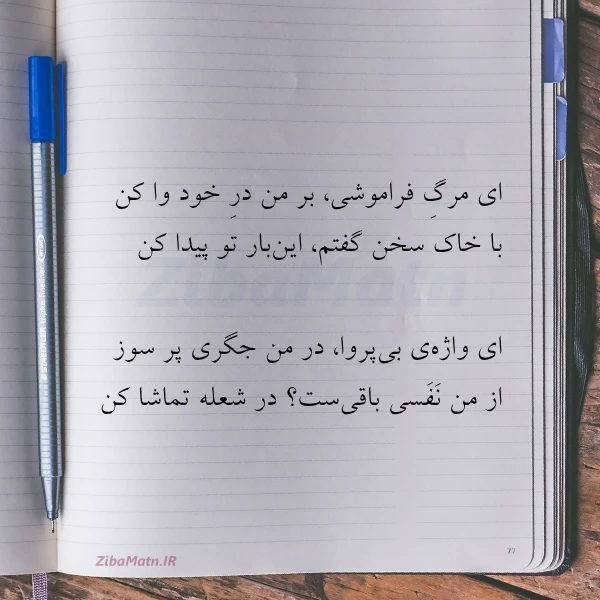 ای مرگِ فراموشی، بر من درِ خود وا کن
با خاک سخن گفتم، این‌بار تو پیدا کن
ZibaMatn
ای واژه‌ی بی‌پروا، در من جگری پر سوز
از من نَفَسی باقی‌ست؟ در شعله تماشا کن
ZibaMatn.IR